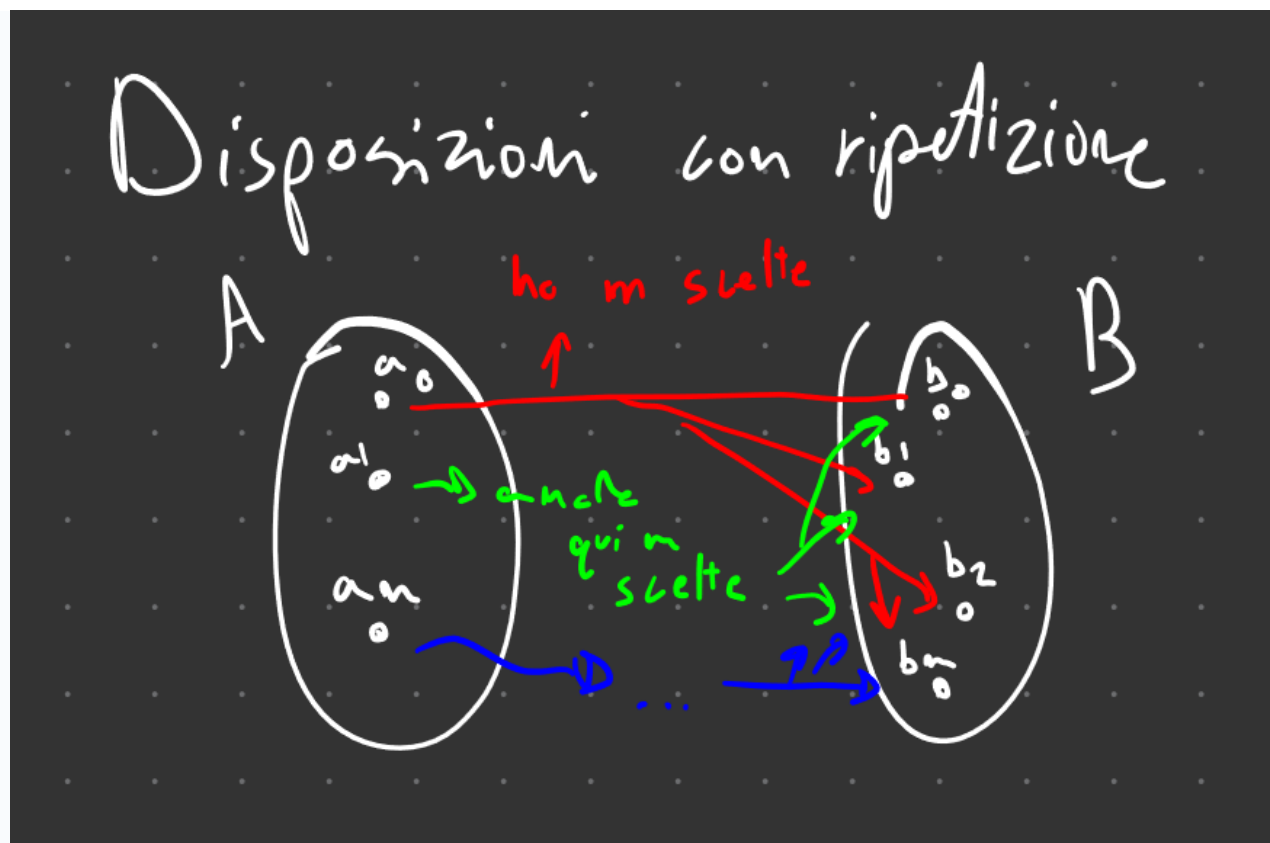 Disposizioni con ripetizione
ho m scelte
A
B
a0
b0
a1
b1
anche
qui m
scelte
b2
an
bm
...